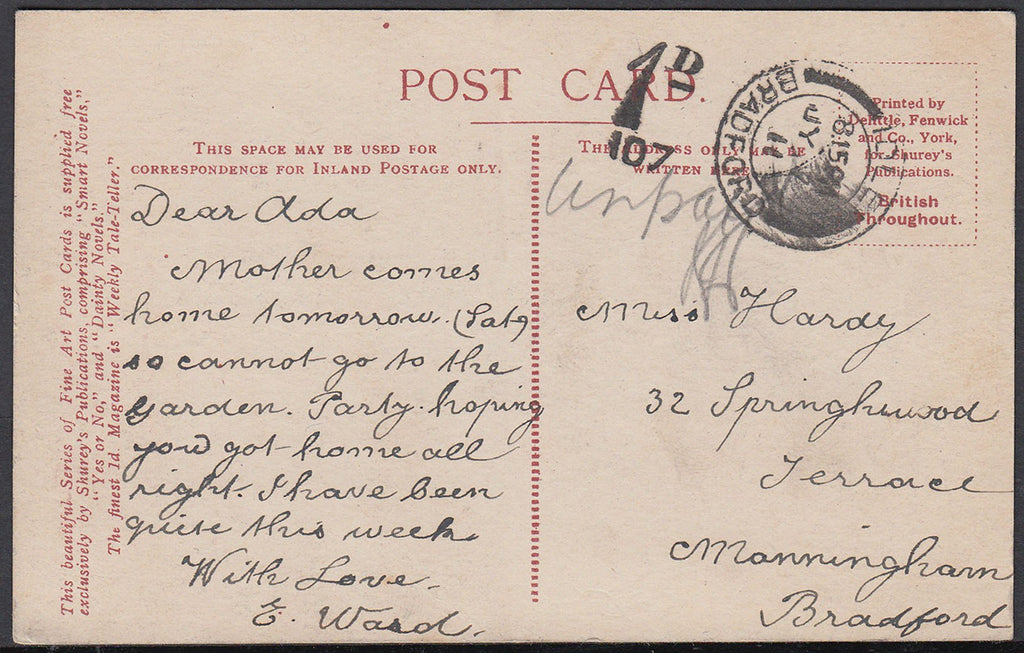 POST CARD.
THIS SPACE MAY BE USED FOR
CORRESPONDENCE FOR INLAND POSTAGE ONLY.
THE ADDRESS ONLY TO BE
WRITTEN HERE
1D
107
BRADFORD
8.15 PM
JY
11
Printed by
Delittle, Fenwick
and Co., York,
for Shurey's
Publications.
British
Throughout.
This beautiful Series of Fine Art Post Cards is supplied free
exclusively by Shurey's Publications, comprising "Smart Novels,"
"Yes or No," and "Dainty Novels."
The finest 1d. Magazine is "Weekly Tale-Teller."
Dear Ada
Mother comes
home tomorrow. (Sat)
so cannot go to the
garden. Party. hoping
you got home all
right. I have been
quite this week
With Love.
E. Ward.
Unpaid
Miss Hardy
32 Springhurwood
Terrace
Manningham
Bradford